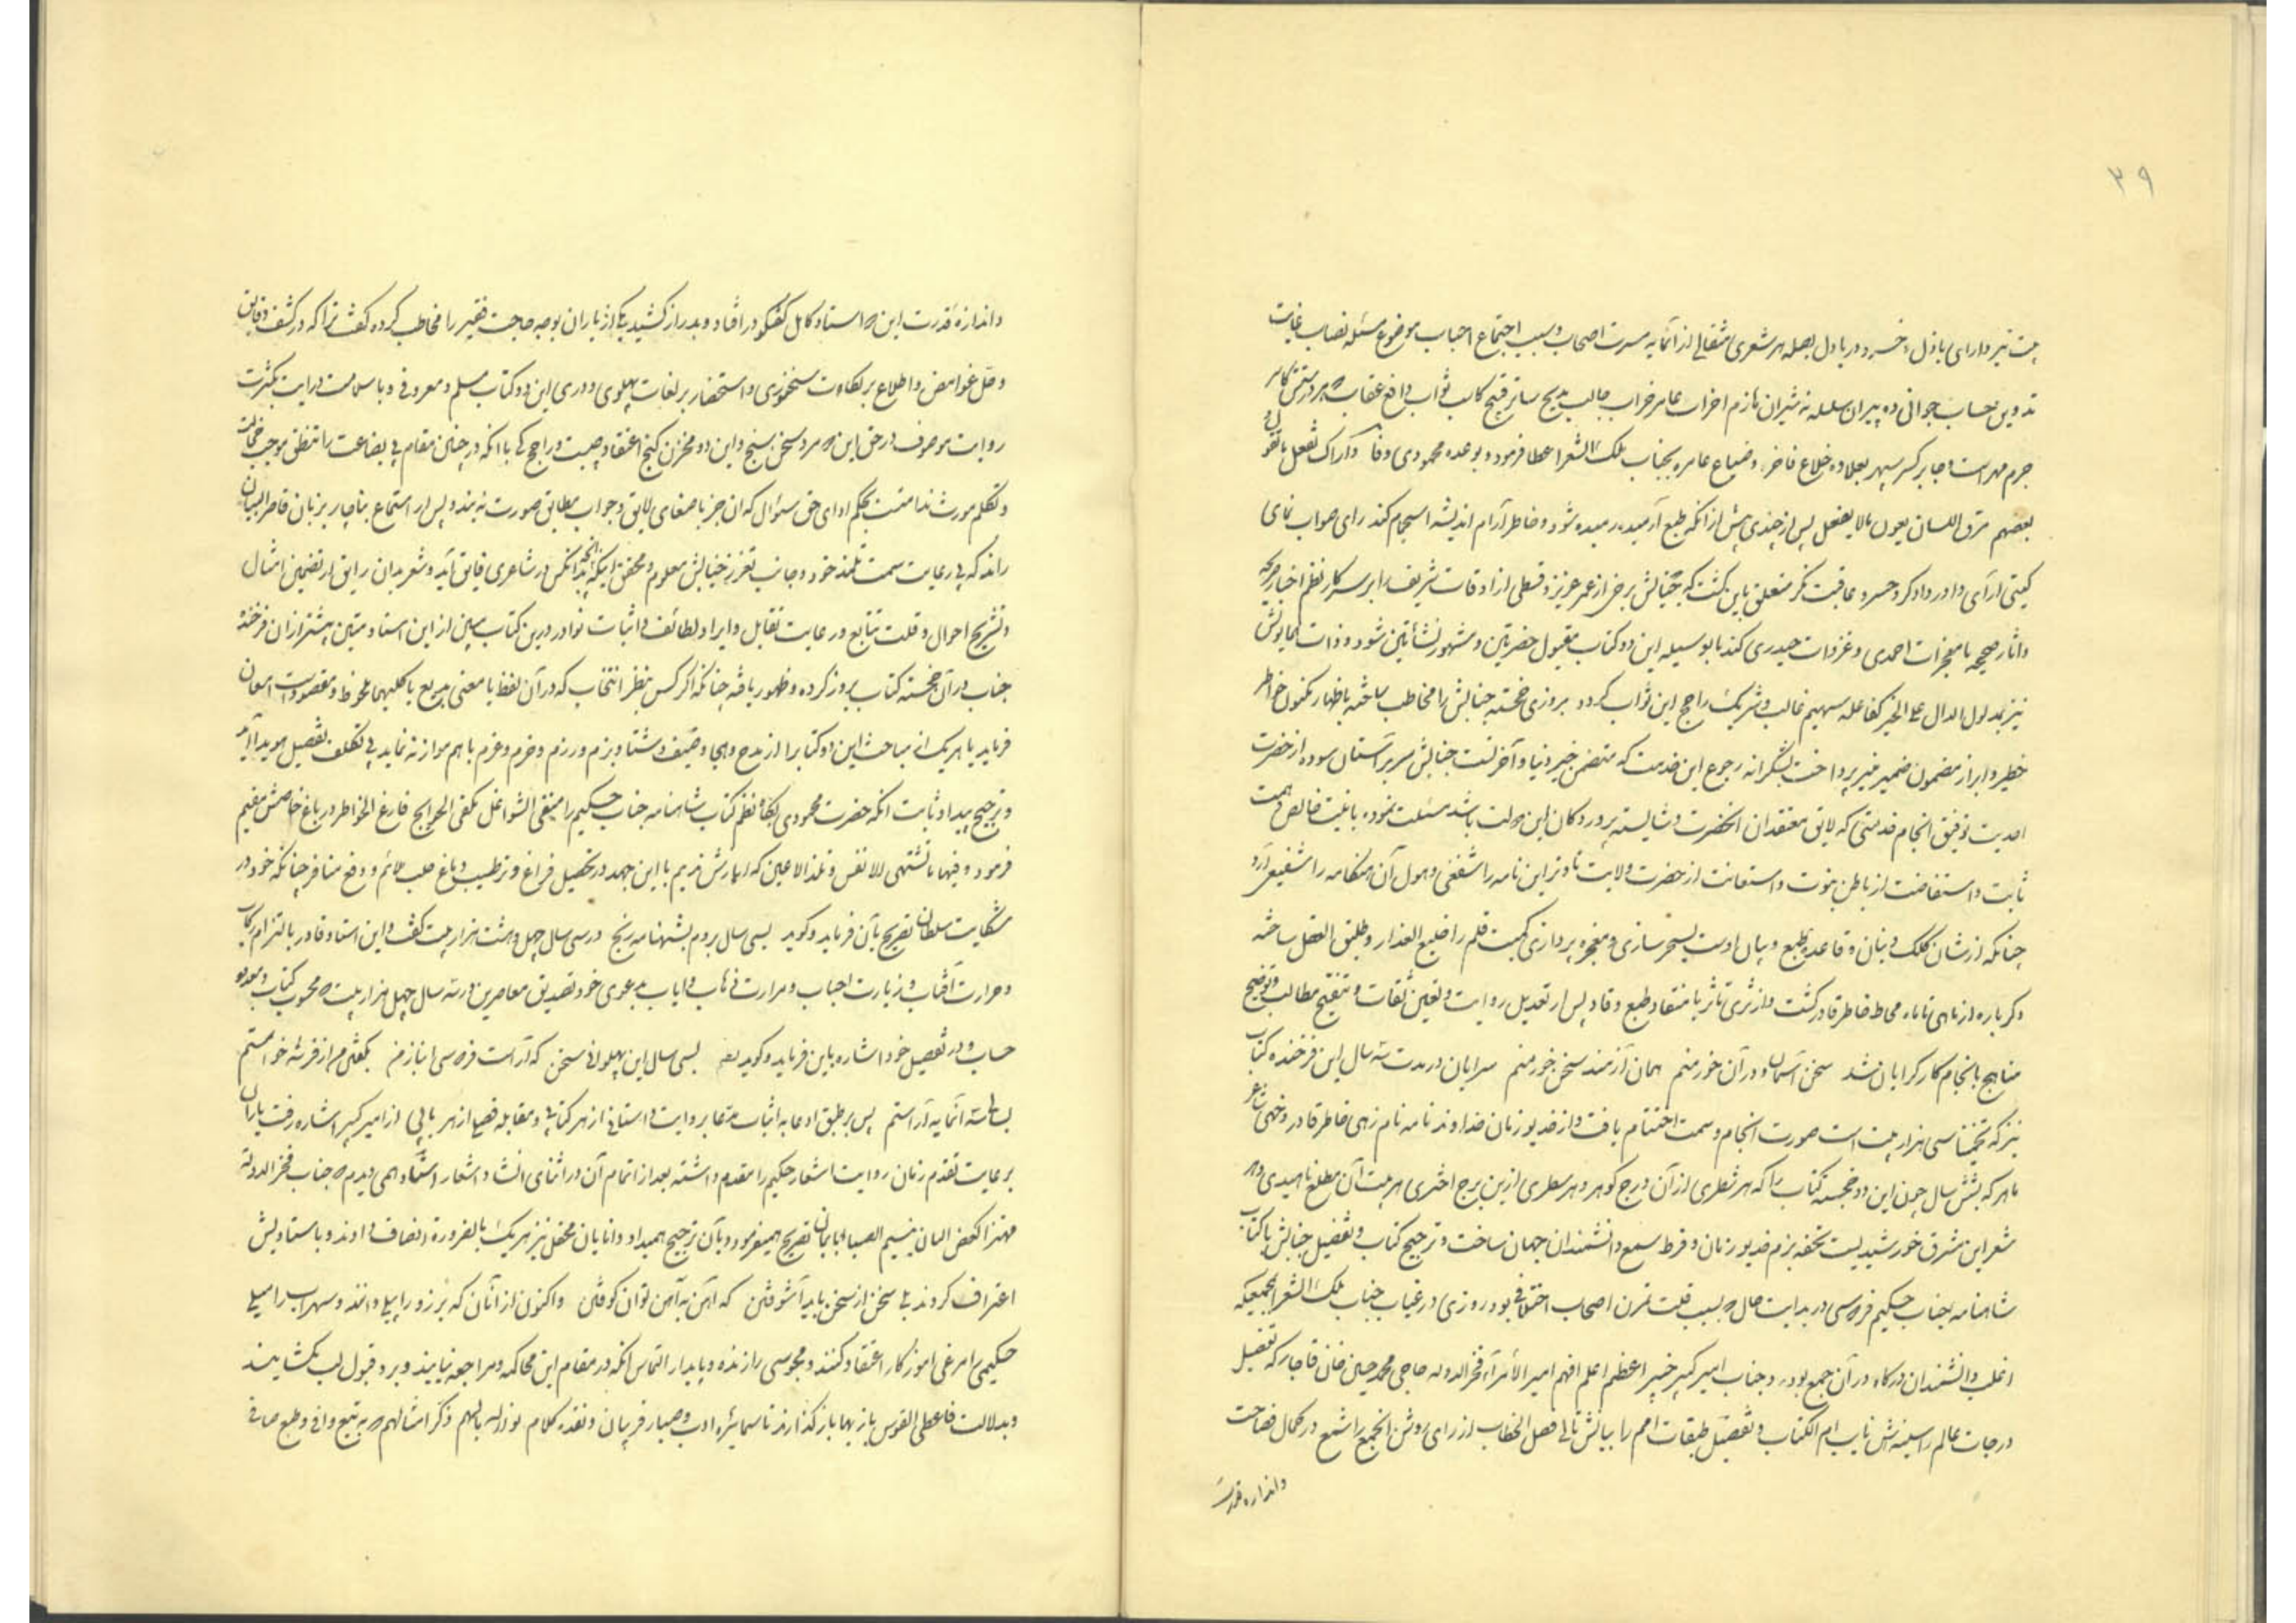 ۳۹
بیت نیز دارای باذل و خسرو دریادل بصله هر شعری مثقالی از آنمایه مسرت اصحاب و سبب اجتماع احباب موضوع مسئله نصاب غایت
تدوین حساب جوانی ده پیران سلسله نه شیران هازم احزاب عامر خراب جالب مدیح ساتر قبیح کاسب ثواب دافع عقاب
جرم مهر است و جابر کسر سپهر بعلاوه خلاع فاخر و ضیاع عامره بجناب ملک الشعرا عطا فرمود و بوعده محمودی وفا
بعضهم یقول مالا یفعل پس از چندی پیش از آنکه طبع آرمیده رمیده شود و خاطر آرام اندیشه استجمام کند رای صواب نمای
گیتی آرای داور دادگر و خسرو عاقبت نگر متعلق باین گشت که جنابش برخی از عمر عزیز و قسطی از اوقات شریف را بر سر کار نظم اخبار صریحه
و آثار صحیحه با معجزات احمدی و غزوات حیدری کند تا بوسیله این دو کتاب مقبول حضرتین و مشهور نشأتین شود و ذات همایونش
نیز بمدلول الدال علی الخیر کفاعله سهیم غالب و شریک راجح این ثواب گردد بروزی خجسته جنابش را مخاطب ساخته باظهار مکنون خاطر
خطیر و ابراز مضمون ضمیر منیر پرداخت بشکرانه رجوع این خدمت که متضمن خیر دنیا و آخرتست جنابش سر بر آستان سوده از حضرت
احدیت توفیق انجام خدمتی که لایق معتقدان آنحضرت و شایسته پروردگان این دولت باشد مسئلت نموده با نیت خالص و همت
ثابت و استفاضت از باطن نبوت و استعانت از حضرت ولایت تا دو تر این نامه را شفیعی و هول آن هنگامه را شفیعی آرد
چنانکه از شان کلک و بنان و قاعده طبع و بیان اوست بسحر سازی و معجزه پردازی کمیت قلم را خلیع العذار و طلیق العقل ساخته
دگرباره از ماهی تا ماه محاط خاطر قادر گشت و از ثری تا ثریا منقاد طبع وقاد پس از تعدیل روایت و تعیین ثقات و تنقیح مطالب و توضیح
مناهج بانجام کار گرایان شد سخن آسمان و در آن خور منم همان آزمند سخن خور منم سرایان در مدت سه سال این فرخنده کتاب
نیز که تخمیناً سی هزار بیت است صورت انجام و سمت اختتام یافت و از خدیو زمان خداوندنامه نام زهی خاطر قادر و خهی شاعر
ماهر که بشش سال چون این دو خجسته کتاب را که هر شطری از آن درج گوهر و هر سطری ازین برج اختری هر بیت آن مطلع ناهیدی و هر
شعر این مشرق خورشیدیست تحفه بزم خدیو زمان و قرط سمع دانشمندان جهان ساخت و ترجیح کتاب و تفضیل جنابش با کتاب
شاهنامه بجناب حکیم فردوسی در بدایت حال بسبب قلت تمرن اصحاب اختلافی بود روزی در غیاب جناب ملک الشعرا بمجمعیکه
اغلب دانشمندان درگاه در آن جمع بودند و جناب امیر کبیر خبیر اعظم اعلم افهم امیر الامرآء فخر الدوله حاجی محمد حسین خان قاجار که تفصیل
درجات عالم را سینه‌اش نایب ام الکتاب و تفصیل طبقات امم را بیانش تالی فصل الخطاب از رای روشن انجمع را شمع در کمال فصاحت
و اندازه قدرت
و اندازه قدرت این دو استاد کامل گفتگو در افتاد و بدراز کشید یکی از یاران بوجه حاجت فقیر را مخاطب کرده گفت ترا که در کشف دقایق
و حل غوامض و اطلاع بر نکات سخنوری و استحضار بر لغات پهلوی و دری این دو کتاب مسلم و معروفی و باسلامت درایت بکثرت
روایت موصوف در حق این دو مرد سخن سنج و این دو مخزن گنج اعتقاد چیست و راجح کی با آنکه در چنان مقام بی بضاعت را تنطق موجب خجالت
و تکلم مورث ندامتست بحکم ادای حق سئوال که آن جز باصغای لایق و جواب مطابق صورت نه بندد پس از استماع بناچار بر زبان قاصر البیان
راند که بی رعایت سمت تلمذ خود و جانب تعزز جنابش معلوم و محقق اینکه آنچه بدانکس در شاعری فایق آید و شعر بدان رایق از تضمین امثال
و تشریح احوال و قلت تتابع و رعایت تقابل و ایراد لطائف و اثبات نوادر درین کتاب مبین از این استاد متین بیشتر از آن فرخنده
جناب در آن خجسته کتاب بروز کرده و ظهور یافته چنانکه اگر کس بنظر انتخاب که در آن لفظ یا معنی بدیع یا کلیهما ملحوظ و مقصود است امعان
فرماید یا هر یک از مباحث این دو کتاب را از مدح و هجا و صیف و شتا و بزم و رزم و حزم و عزم با هم موازنه نماید بی تکلف تفضیل هویدا آید
و ترجیح پیدا و ثابت آنکه حضرت محمودی بگاه نظم کتاب شاهنامه جناب حکیم را منفی الشواغل مکفی الحوایج فارغ الخاطر در باغ خاصش مقیم
فرمود و فیها ما تشتهی الانفس و تلذ الاعین که انهارش ندیم با این جهد در تحصیل فراغ و ترطیب دماغ جلب ملائم و دفع منافر چنانکه خود در
شکایت سلطان تصریح بآن فرماید و گوید بسی سال بردم بشهنامه رنج در سی سال چهل و هشت هزار بیت گفت و این استاد قادر بالتزام رکاب
و حرارت آفتاب و زیارت احباب و مرارت ذهاب و ایاب بدعوی خود تصدیق معاصرین در سه سال چهل هزار بیت محسوب کتاب و معدود
حساب و در تفصیل خود اشاره باین فرماید و گوید بسی سال این پهلوانی سخن که آراست فردوسی انباز من بگفتی مر از فر شه خواستم
بسه ساله آنمایه آراستم پس بر طبق ادعا به اثبات مدعا بروایت داستانی از هر کتابی و مقابله فصلی از هر بابی از امیر کبیر اشاره رفت یاران
برعایت تقدم زمان روایت اشعار حکیم را مقدم داشته بعد از اتمام آن در اثنای انشاد اشعار استاد همی دیدم جناب فخر الدوله
مهتزا کغصن البان بنسیم الصبا ابابیان تصریح همیفرمود و بآن ترجیح همیداد و دانایان محفل نیز هر یک بالضروره انصاف دادند و باستادیش
اعتراف کردند بلی سخن از سخن باید آشوفتن که آهن به آهن توان کوفتن و اکنون از آنان که برزو را پیلی دانند و سهراب را میلی
حکیمی را مرغی آموزگار اعتقاد کنند و مجوسی را زنده و پایدار التماس آنکه در مقام این محاکمه و مراجعه نیایند و برد و قبول لب نگشایند
و بدلالت فاعطی القوس باریها باز گذارند تا سمایره ادب و صیارفه بیان و نقده کلام نور الله بالهم و کثر امثالهم به تتبع وافی و طبع صافی